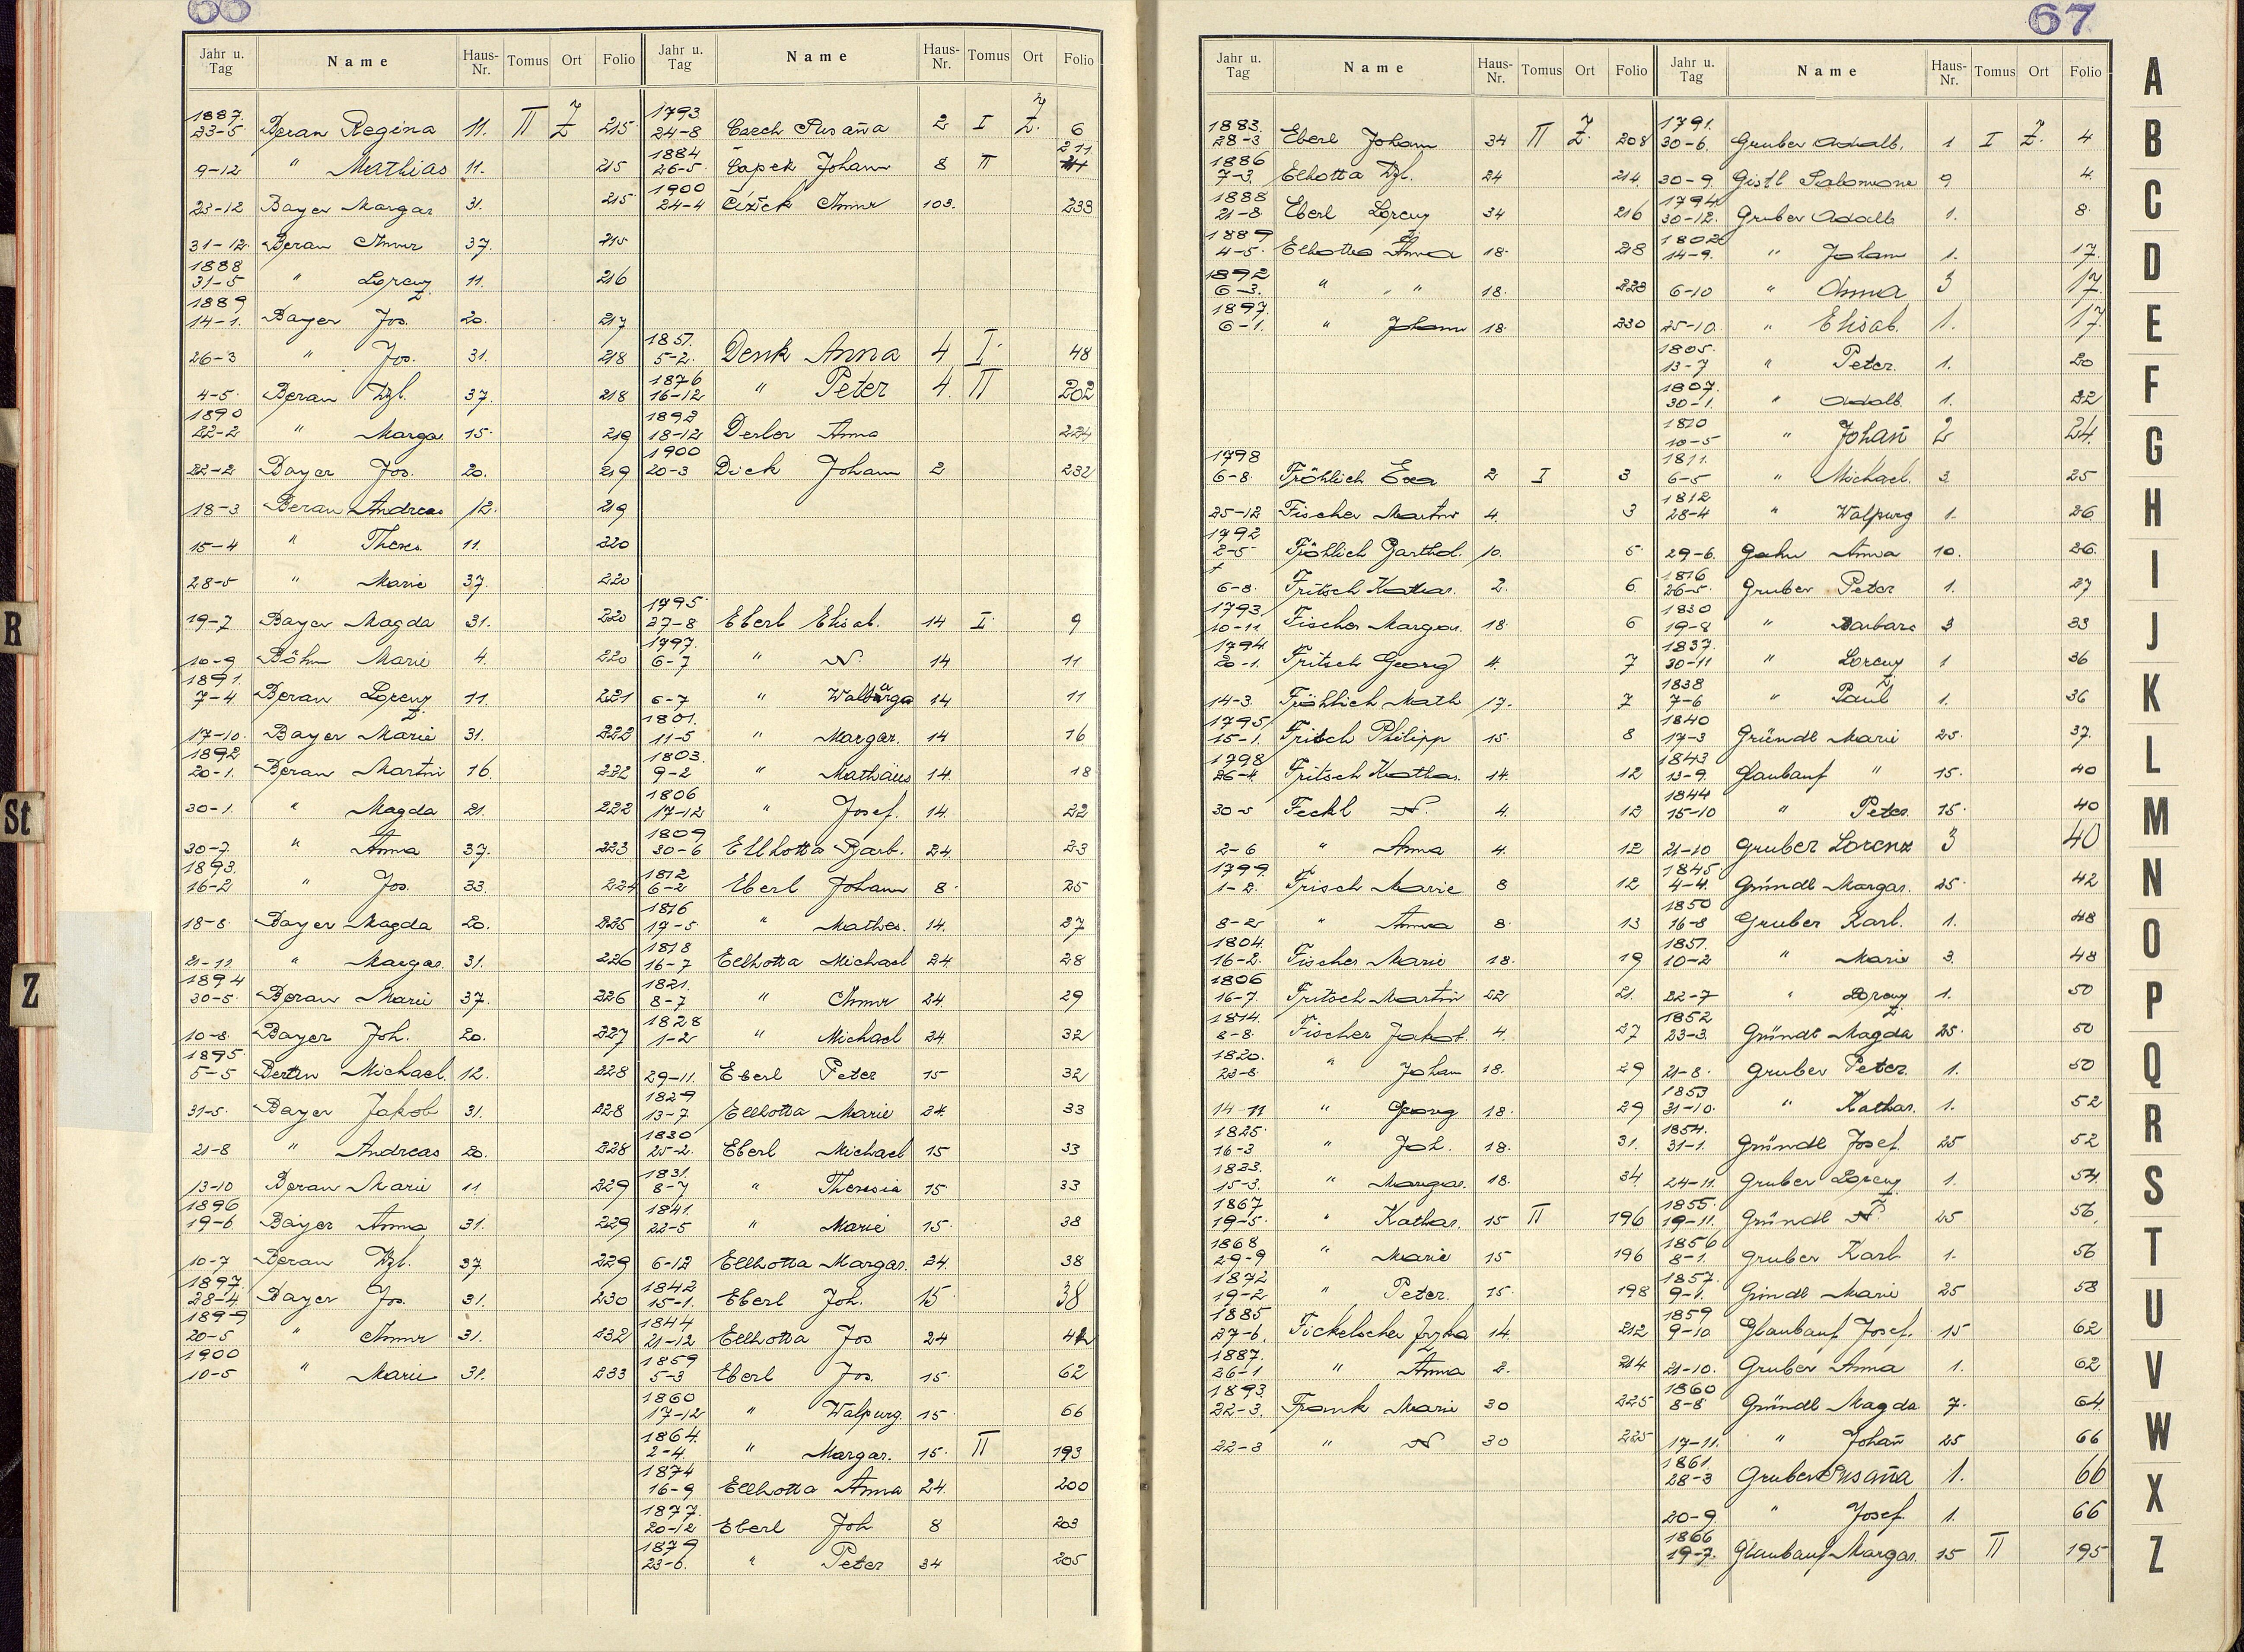 66
Jahr u. Tag Name Haus-Nr. Tomus Ort Folio
1887. 23-5 Beran Regina 11. II Z 215
9-12 " Mathias 11. 215
23-12 Bayer Margar 31. 215
31-12. Beran Anna 37. 215
1888 31-5 " Lorenz 11. 216
1889 14-1. Bayer Jos. 20. 217
26-3 " Jos. 31. 218
4-5. Beran Wzl. 37. 218
1890 22-2 " Marga 15. 219
22-2 Bayer Jos. 20. 219
18-3 Beran Andreas 12. 219
15-4 " Theres. 11. 220
28-5 " Marie 37. 220
19-7 Bayer Magda 31. 220
10-9 Böhm Marie 4. 220
1891. 7-4 Beran Lorenz 11. 221
17-10. Bayer Marie 31. 222
1892 20-1. Beran Martin 16. 222
30-1. " Magda 21. 222
30-7. " Anna 37. 223
1893. 16-2 " Jos. 33. 224
18-8. Bayer Magda 20. 225
21-11. " Margar. 31. 226
1894 30-5. Beran Marie 37. 226
10-8. Bayer Joh. 20. 227
1895. 5-5 Beran Michael. 12. 228
31-5. Bayer Jakob 31. 228
21-8 " Andreas 20. 228
13-10 Beran Marie 11 229
1896 19-6. Bayer Anna 31. 229
10-7 Beran Wzl. 37. 229
1897. 28-4. Bayer Jos. 31. 230
1899 20-5 " Anna 31. 232
1900 10-5 " Marie 31. 233
Jahr u. Tag Name Haus-Nr. Tomus Ort Folio
1793. 24-8 Czech Susaña 2 I Z. 6
1884 26-5. Čapek Johann 8 II 211
1900 24-4 Čížek Anna 103. 233
1851. 5-2. Denk Anna 4 I. 48
1876 16-12 " Peter 4. II 202
1892 18-12 Derler Anna 224
1900 20-3 Dick Johann 2 232
1795. 27-8 Eberl Elisab. 14 I. 9
1797. 6-7 " N. 14 11
6-7 " Walburga 14 11
1801. 11-5 " Margar. 14 16
1803. 9-2 " Mathäus 14. 18
1806 17-12 " Josef. 14. 22
1809 30-6 Ellhotta Barb. 24. 23
1812 6-2 Eberl Johann 8. 25
1816 17-5. " Mathes. 14. 27
1818 16-7 Ellhotta Michael 24. 28
1821. 8-7 " Anna 24. 29
1828 1-2 " Michael 24 32
29-11. Eberl Peter 15 32
1829 13-7 Ellhotta Marie 24. 33
1830 25-2. Eberl Michael 15 33
1831. 8-7 " Theresia 15 33
1841. 22-5 " Marie 15. 38
6-12 Ellhotta Margar. 24. 38
1842 15-1. Eberl Joh. 15 38
1844 21-12 Ellhotta Jos 24 42
1859 5-3 Eberl Jos. 15. 62
1860 17-12 " Walpurg. 15. 66
1864. 2-4. " Margar. 15. II 193
1874 16-9 Ellhotta Anna 24. 200
1877. 20-12 Eberl Joh 8 203
1879 23-6. " Peter 34 205
67
Jahr u. Tag Name Haus-Nr. Tomus Ort Folio
1883. 28-3 Eberl Johann 34 II Z. 208
1886 7-3. Elhotta Wzl. 24 214.
1888 21-8. Eberl Lorenz 34 216
1889 4-5. Elhotta Anna 18. 218
1892 6-3. " " 18. 223
1897. 6-1. " Johann 18. 230
1798 6-8. Fröhlich Eva 2 I 3
25-12 Fischer Martin 4. 3
1792 2-5 Fröhlich Barthol. 10. 5.
6-8. Fritsch Kathar. 2. 6.
1793. 10-11 Fischer Margar. 18. 6
1794 20-1. Fritsch Georg 4. 7
14-3. Fröhlich Math 17. 7
1795 15-1. Fritsch Philipp 15. 8
1798 26-4. Fritsch Kathar. 14. 12
30-5 Feckl N. 4. 12
2-6 " Anna 4. 12
1799. 1-2. Frisch Marie 8 12
8-2 " Anna 8. 13
1804. 16-2. Fischer Marie 18. 19
1806 16-7. Fritsch Martin 22 21.
1814. 8-8. Fischer Jakob. 4. 27
1820. 23-8. " Johann 18. 29
14-11 " Georg 18. 29
1825. 16-3 " Joh. 18. 31.
1833. 15-3. " Margar. 18. 34.
1867 19-5. " Kathar. 15 II 196
1868 29-9 " Marie 15 196
1872 19-2 " Peter. 15. 198
1885 27-6. Fickelscher Frzka 14. 212
1887. 26-1 " Anna 2. 214
1893. 22-3. Frank Marie 30 225
22-3 " N 30 225
Jahr u. Tag Name Haus-Nr. Tomus Ort Folio
1791. 30-6. Gruber Adalb. 1 I Z. 4
30-9. Gistl Salomone 9 4.
1794. 30-12. Gruber Adalb 1. 8.
1802 14-9. " Johann 1. 17.
6-10 " Anna 3 17.
25-10. " Elisab. 1. 17.
1805. 13-7 " Peter. 1. 20
1807. 30-1. " Adalb. 1. 22
1810 10-5 " Johañ 2 24.
1811. 6-5 " Michael. 3. 25
1812 28-4 " Walpurg 1. 26.
29-6. Gahn Anna 10. 26.
1816 26-5. Gruber Peter 1. 27
1830 19-8 " Barbara 3 33
1837. 30-11 " Lorenz 1 36
1838 7-6 " Paul 1. 36
1840 17-3 Gründl Marie 25. 37.
1843 13-9. Glaubauf " 15. 40
1844 15-10 " Peter. 15. 40
21-10 Gruber Lorenz 3 40
1845 4-4. Gründl Margar. 25. 42
1850 16-8 Gruber Karl. 1. 48
1851. 10-2 " Marie 3. 48
22-7 " Lorenz 1. 50
1852 23-3. Gründl Magda 25. 50
21-8. Gruber Peter. 1. 50
1853 31-10. " Kathar. 1. 52
1854. 31-1. Gründl Josef. 25 52
24-11. Gruber Lorenz 1. 54
1855. 19-11. Gründl N. 25 56.
1856 8-1. Gruber Karl 1. 56
1857. 9-1. Gründl Marie 25 58
1859 9-10. Glaubauf Josef. 15 62
21-10. Gruber Anna 1. 62
1860 8-8. Gründl Magda 7. 64.
17-11. " Johañ 25 66
1861. 28-3 Gruber Susaña 1. 66
20-9. " Josef. 1. 66
1866 19-7. Glaubauf Margar. 15 II 195
A
B
C
D
E
F
G
H
I
J
K
L
M
N
O
P
Q
R
S
T
U
V
W
X
Z
R
St
Z